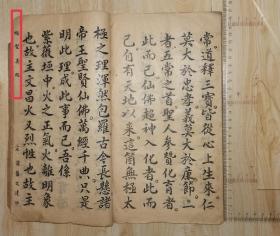 常道釋三寶皆從心上生來仁
莫大於忠孝義莫大於廉節二
者五常之首聖人參贊化育者
此而已仙佛超神入化者此而
已自有天地以來這箇無極太
極之理渾然包羅古今長懸諸
帝王聖賢仙佛萬經千典只是
明此理成此事而已吾係
紫薇垣中火之正氣火離象
也故主文昌火又烈性也故主